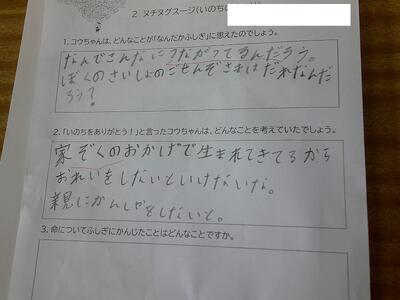 2 ヌチヌグスージ(いのち
1. コウちゃんは、どんなことが「なんだかふしぎ」に思えたのでしょう。
なんでこんなにつながってるんだろう。
ぼくのさいしょのごせんぞさまはだれなんだ
ろう?
2. 「いのちをありがとう!」と言ったコウちゃんは、どんなことを考えていたでしょう。
家ぞくのおかげで生まれてきてるから
おれいをしないといけないな。
親にかんしゃをしないと。
3. 命についてふしぎにかんじたことはどんなことですか。